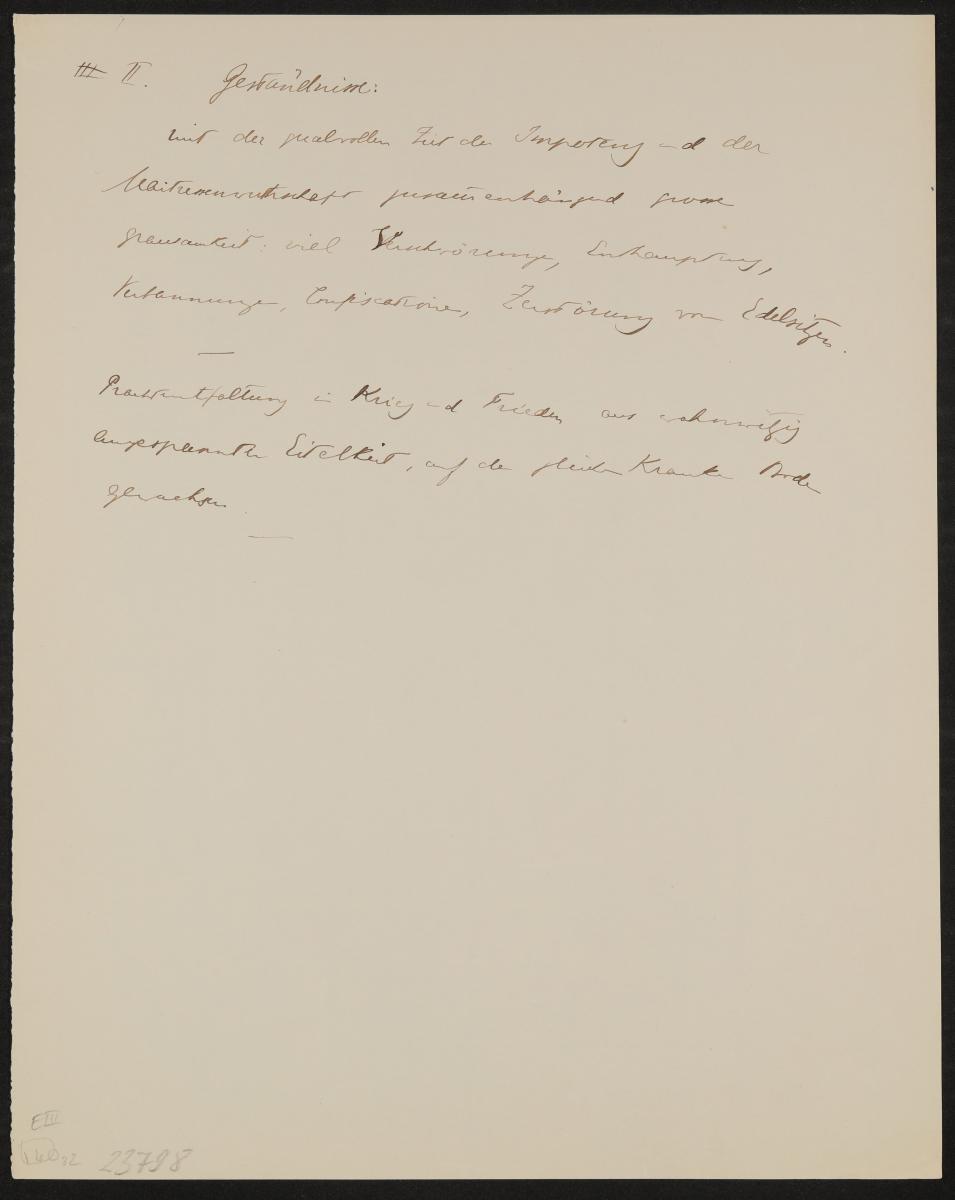 III II. Geständnisse:
mit der qualvollen Zeit der Impotenz und der
Maitressenwirthschaft zusammenhängend grosse
grausamkeit: viel Verschwörungen, Enthauptung,
Verbannungen, Confiscationen, Zerstörung von Edelsitzen.
—
Prachtentfaltung in Krieg und Frieden aus wahnwitzig
angespannter Eitelkeit, auf den gleichen Kranken Boden
gewachsen
—
E III
23798